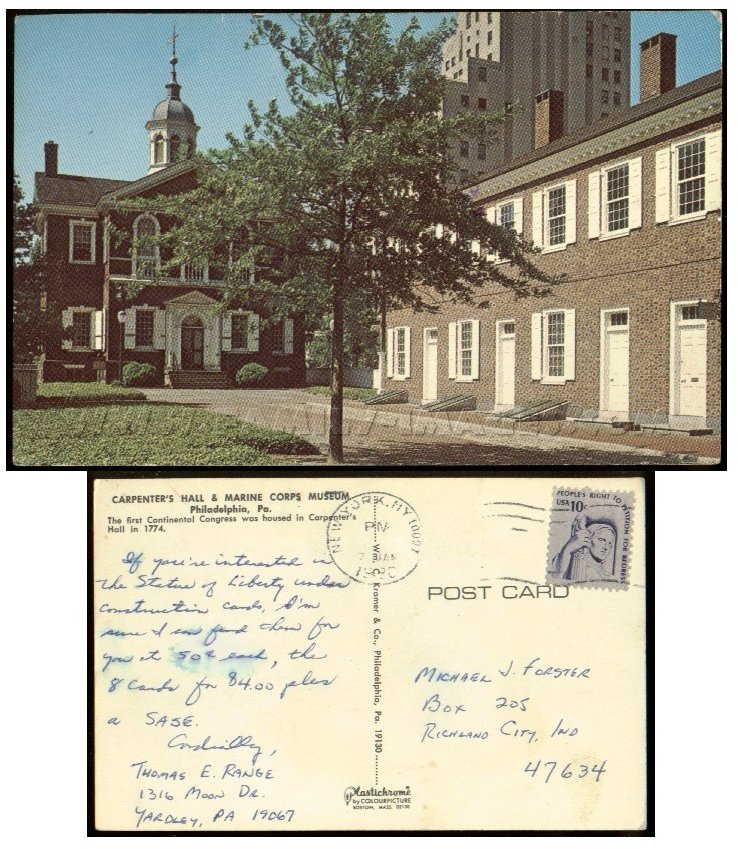 CARPENTER'S HALL & MARINE CORPS MUSEUM
Philadelphia, Pa.
The first Continental Congress was housed in Carpenter's
Hall in 1774.
If you're interested in
the Statue of Liberty under
construction cards, I'm
sure I can find them for
you at 50¢ each, the
8 cards for $4.00 plus
a SASE.
Cordially,
THOMAS E. RANGE
1316 MOON DR.
YARDLEY, PA 19067
NEW YORK, NY 10097
PM
JAN
Kramer & Co., Philadelphia, Pa. 19130
PEOPLE'S RIGHT TO PETITION FOR REDRESS
USA 10c
POST CARD
MICHAEL J. FORSTER
BOX 205
RICHLAND CITY, IND
47634
Plastichrome
by COLOURPICTURE
BOSTON, MASS. 02130